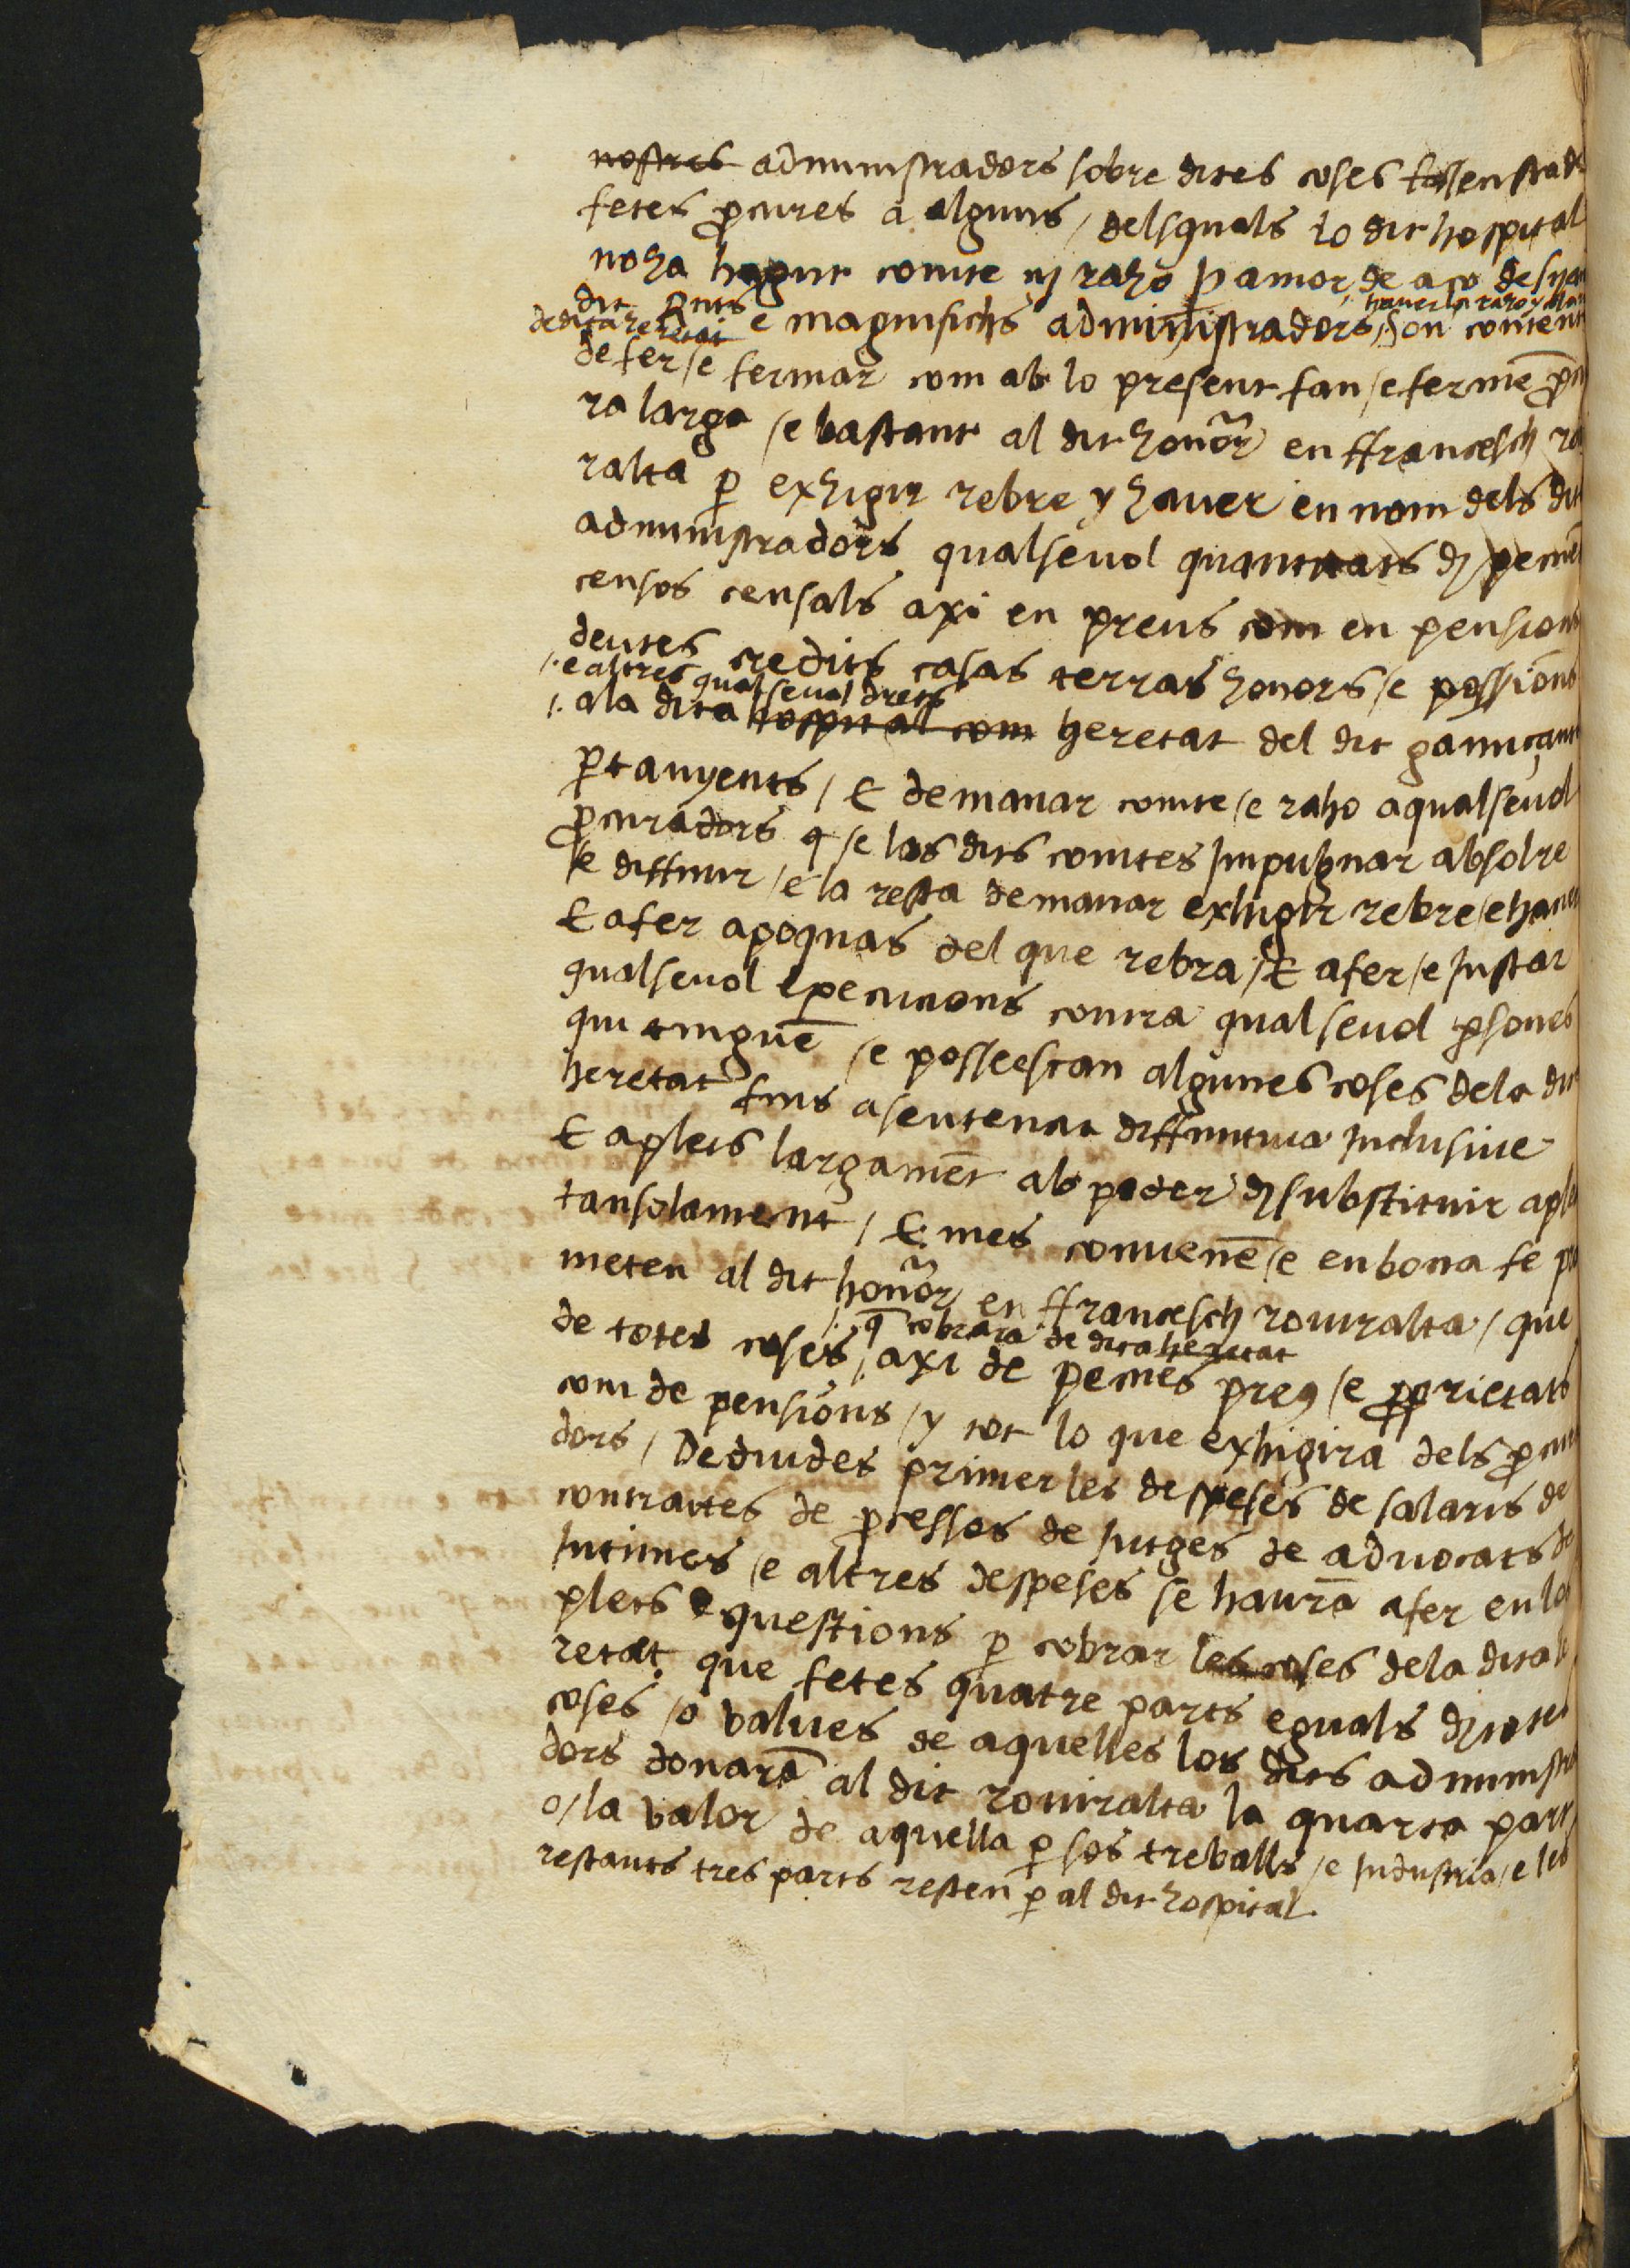 nostres administradors sobre dites coses fossen stade
fetes p̱cures a alguns / delsquals lo dit hospital
noha hagut comte nj raho p̱ amor de aço desijan
haver la raho y
dedita heretat
dit e magnifichs administradors son content
de fer / e fermar com ab lo present fan / e fermē p̱cu
ra larga / e bastant al dit honōr en ffrancesch ro
ralta p̱ exhigir rebre y haver en nom dels dit
administradors qualsevol quantitats dj
censos censals axi en preus com en pensions
deutes credits casas terras honors / e possions
/. e altres qualsevol drets
/. ala dita hospital com heretat del dit
p̱tanyents / E demanar comte / e raho aqualsevol
p̱curadors q se los dits comtes Impugnar absolre
/e diffinir / e la resta demanar exhigir rebre / e haver
E afer apoquas del que rebra / E afer / e Instar
qualsevol execucions contra qualsevol p̱sones
qui tinguē / e posseescan algunes coses dela dit
heretat fins asentencia diffinitiva Inclusive
E aplets largamēt ab poder dj substituir apl
tansolament / E mes convenē / e en bona fe pro
meten al dit honōr en ffrancesch roviralta / que
/. q̄ cobrara de dita heretat
de totes coses /. axi de pecnes preu / e p̱prietats
com de pensions / y tot lo que exhigira dels p̱cura
dors / Deduides primer les despeses de salaris de
contractes de p̱cessos de Jutges de advocats de
Intimes / e altres despeses se haurā afer en los
plets e questions p̱ cobrar les coses dela dita he
retat que fetes quatre parts eguals dj totes
coses / o values de aquelles los dits administra
dors donarā al dit roviralta la quarta part
o / la valor de aquella p̱ sos treballs / e Industria / e les
restants tres parts resten p̱ al dit hospital.